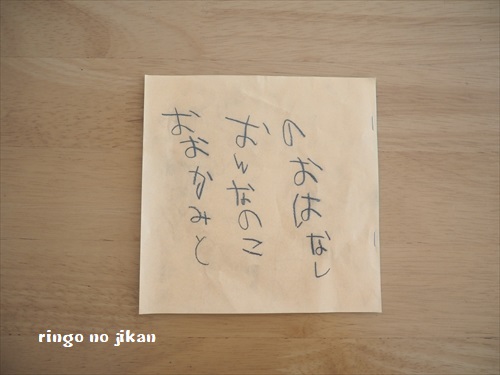 おおかみと
おんなのこ
のおはなし
ringo no jikan